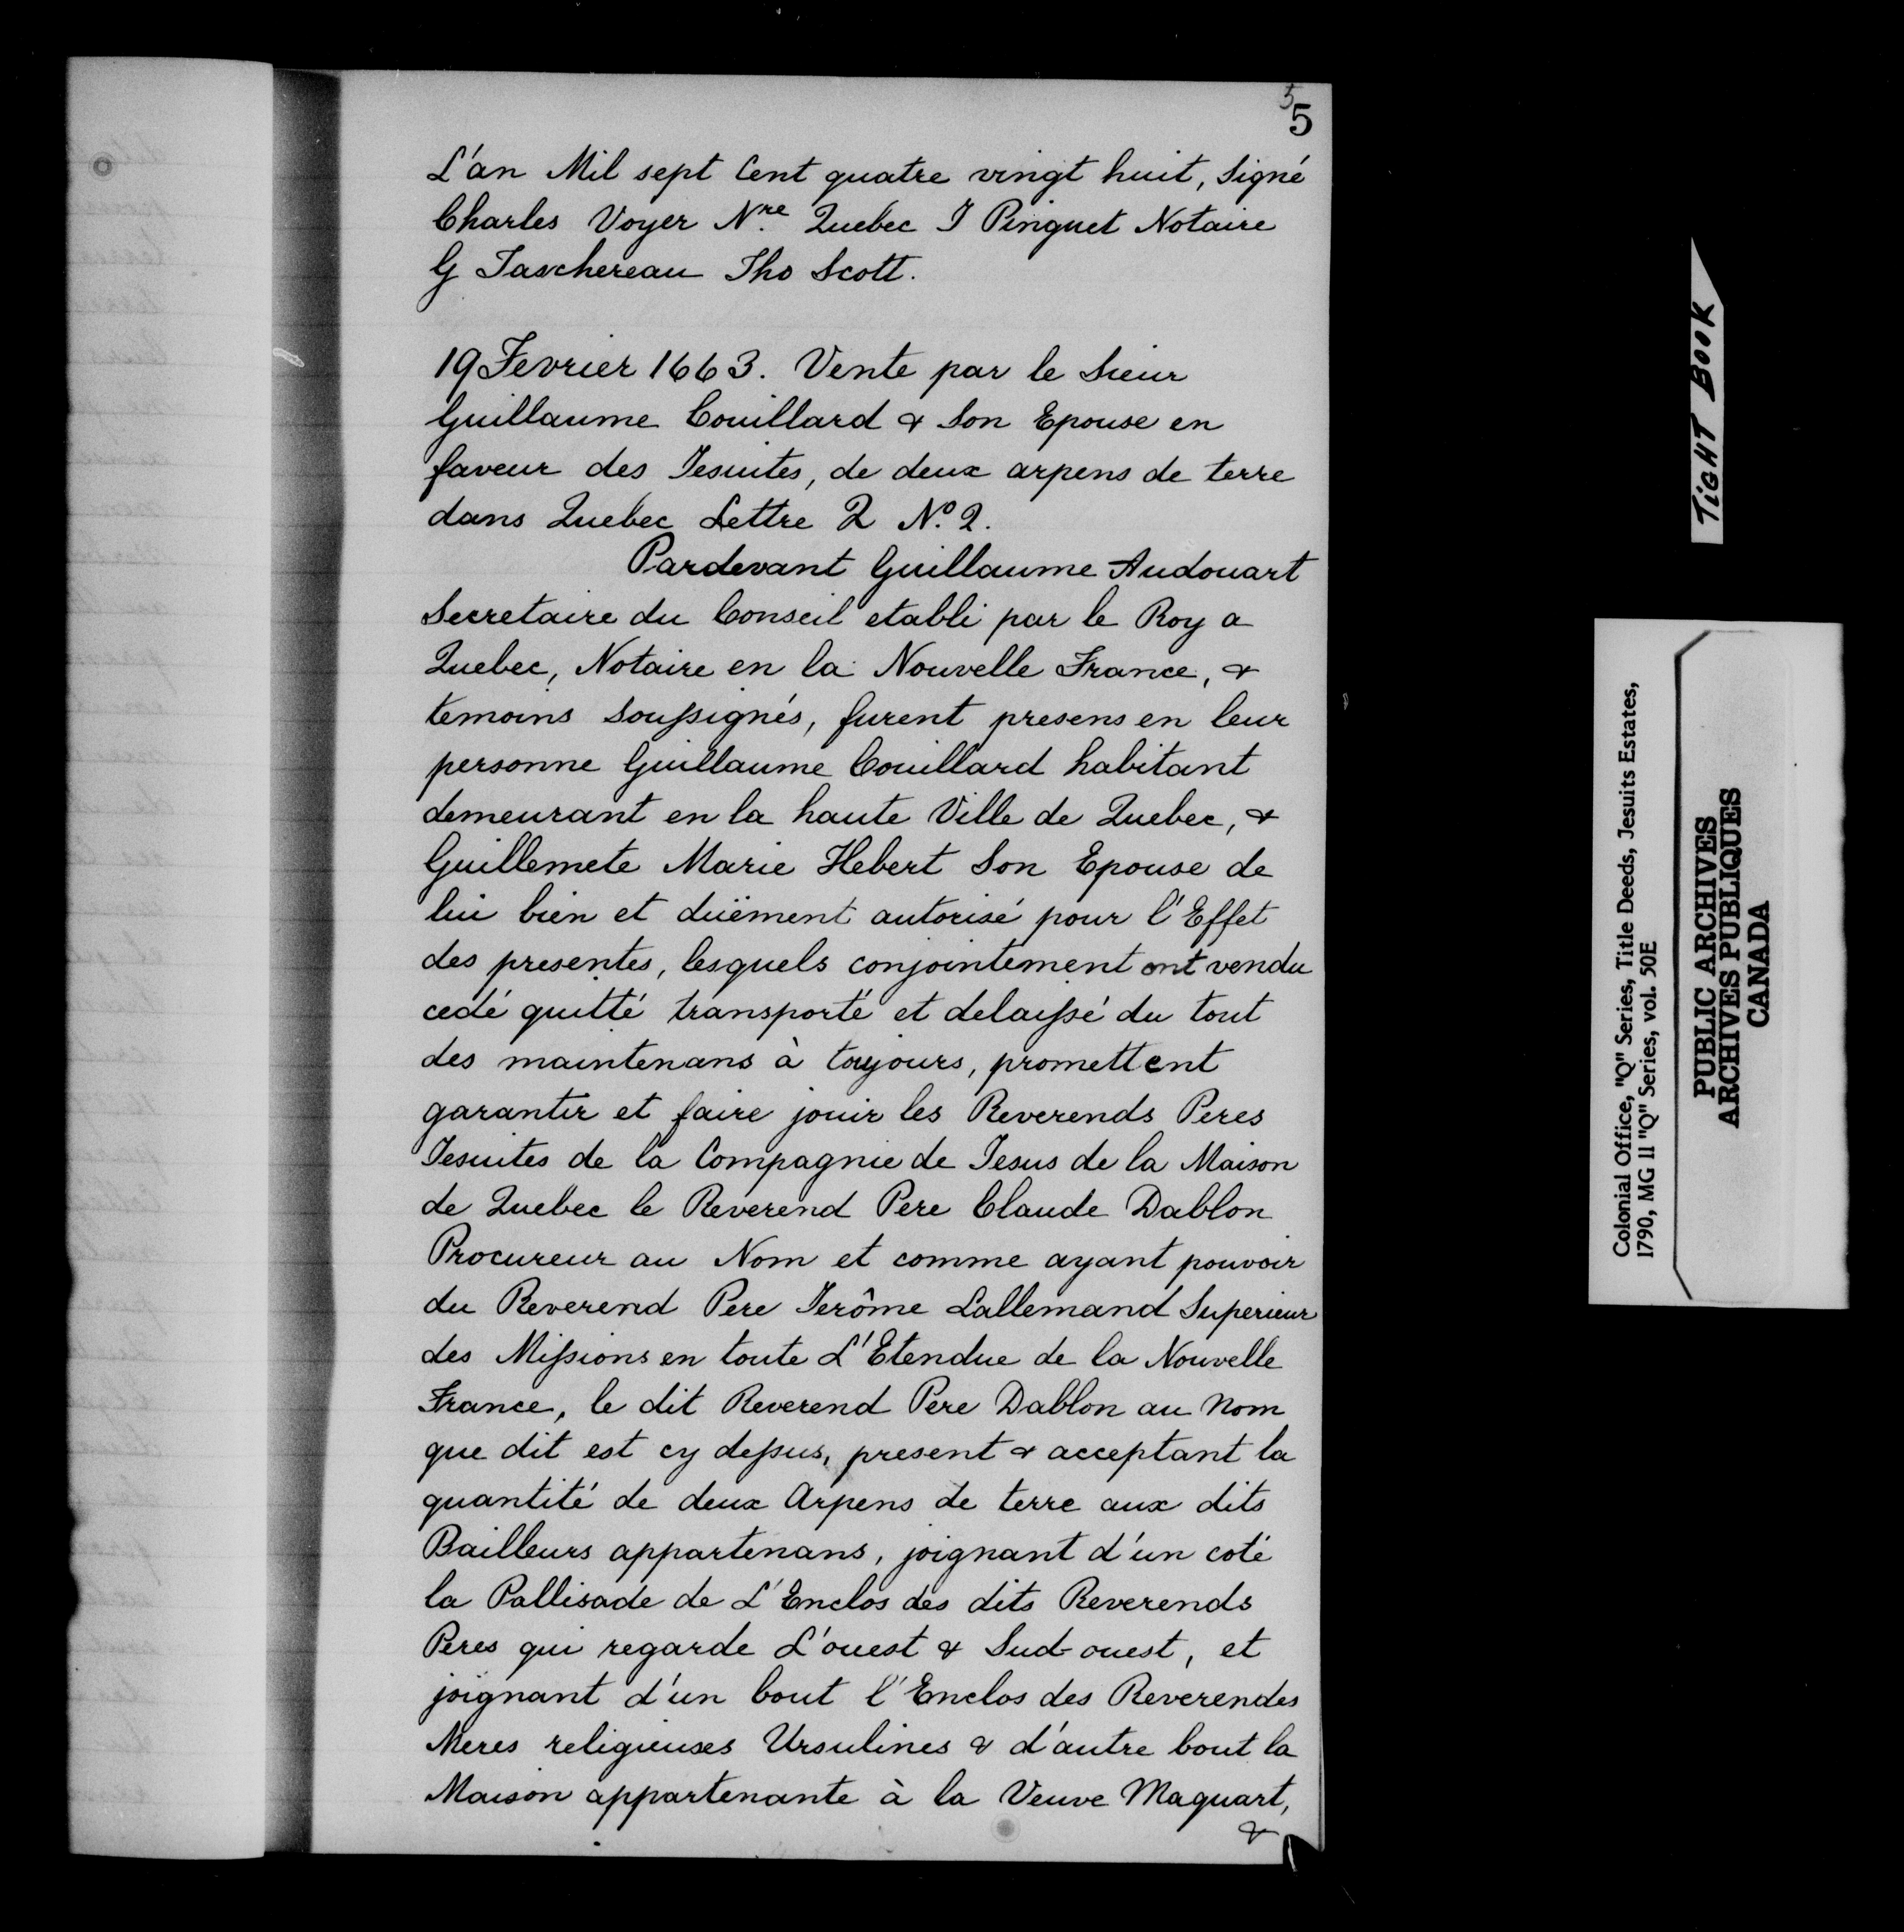 5
5
L'an Mil sept Cent quatre vingt huit, Signé
Charles Voyer N.re Quebec I Pinguet Notaire
G Taschereau Tho Scott.
19 Fevrier 1663. Vente par le Sieur
Guillaume Couillard & Son Epouse en
faveur des Jesuites, de deux arpens de terre
dans Quebec Lettre Q No. 2.
Pardevant Guillaume Audouart
Secretaire du Conseil etabli par le Roy a
Quebec, Notaire en la Nouvelle France, &
temoins Souſsignés, furent presens en leur
personne Guillaume Couillard habitant
demeurant en la haute Ville de Quebec, &
Guillemete Marie Hebert Son Epouse de
lui bien et duëment autorisé pour l'Effet
des presentes, lesquels conjointement ont vendu
cedé quitté transporté et delaiſsé du tout
des maintenans à toujours, promettent
garantir et faire jouir les Reverends Peres
Jesuites de la Compagnie de Jesus de la Maison
de Quebec le Reverend Pere Claude Dablon
Procureur au Nom et comme ayant pouvoir
du Reverend Pere Jerôme Lallemand Superieur
des Miſsions en toute L'Etendue de la Nouvelle
France, le dit Reverend Pere Dablon au Nom
que dit est cy deſsus, present & acceptant la
quantité de deux Arpens de terre aux dits
Bailleurs appartenans, joignant d'un coté
la Pallisade de L'Enclos des dits Reverends
Peres qui regarde L'ouest & Sud-ouest, et
joignant d'un bout l'Enclos des Reverendes
Meres religieuses Ursulines & d'autre bout la
Maison appartenante à la Veuve Maquart,
&
TIGHT BOOK
Colonial Office, "Q" Series, Title Deeds, Jesuits Estates,
1790, MG 11 "Q" Series, vol. 50E
PUBLIC ARCHIVES
ARCHIVES PUBLIQUES
CANADA